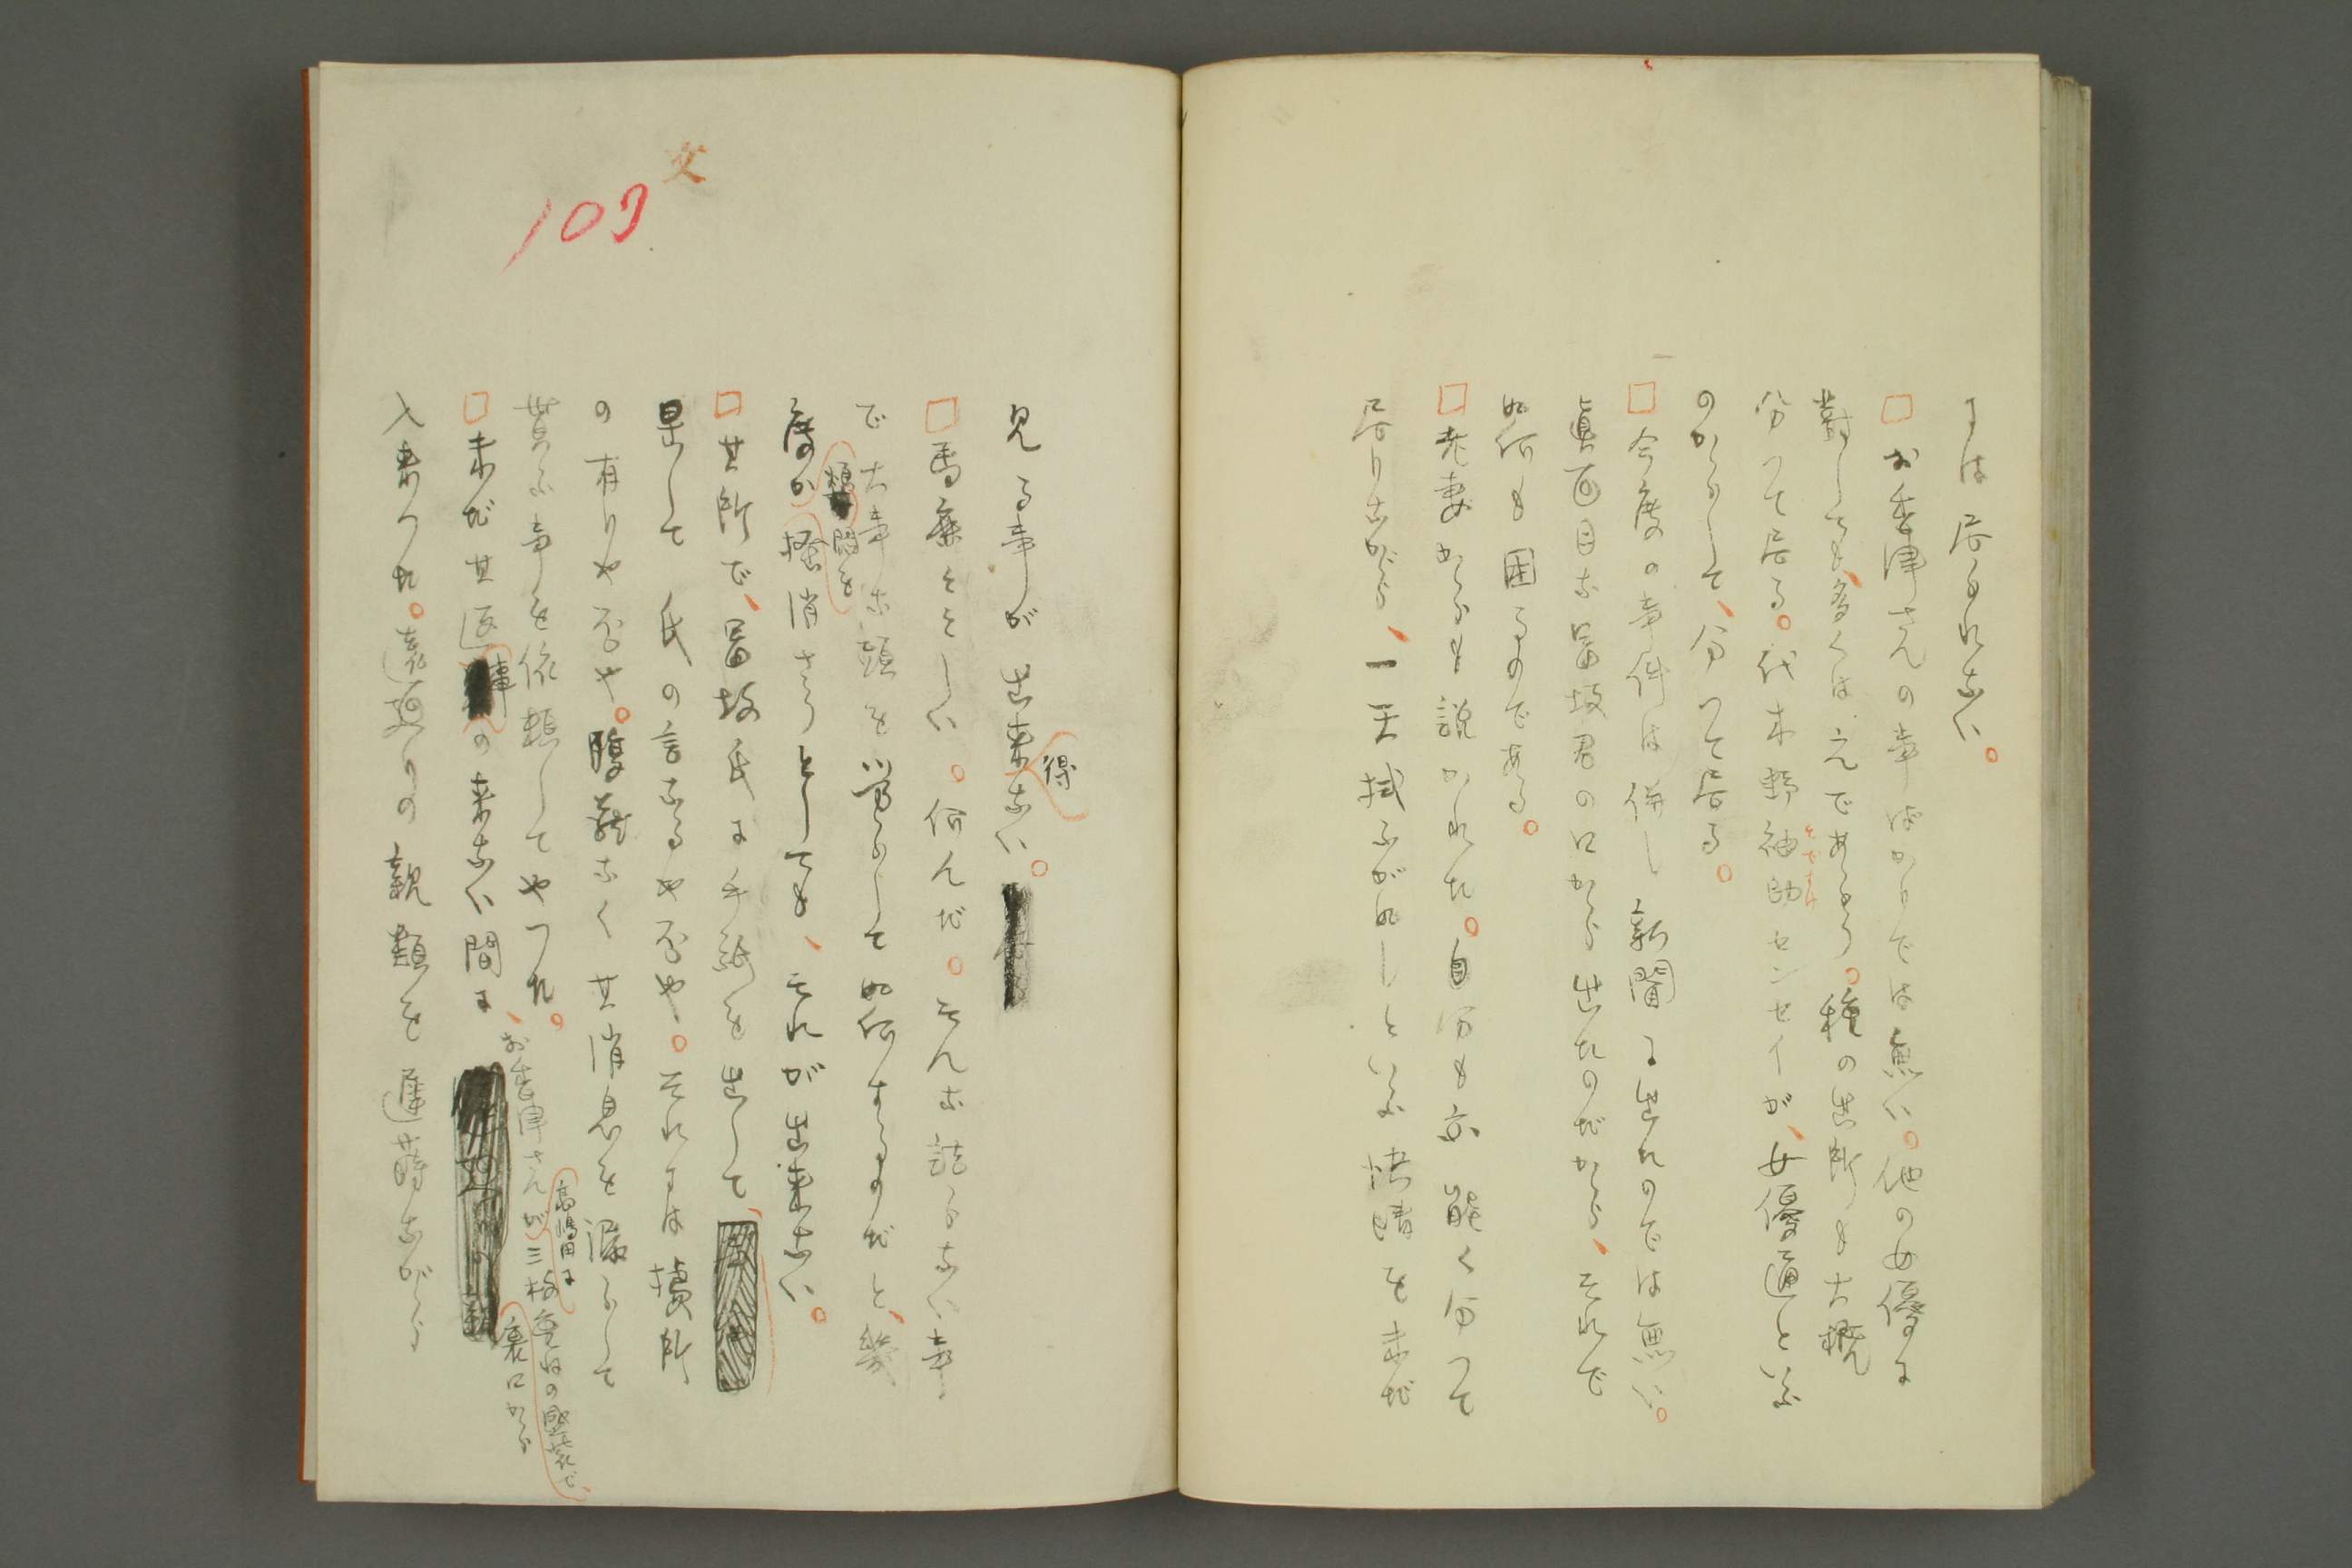 には居られない。
□お季津さんの事ばかりでは無い。他の女優に
對しても、多くは之であらう。種の出所も大概
分つて居る。代木野袖助センセイが、女優通といふ
そですけ
のからして、分つて居る。
□今度の事件は併し新聞に出たのでは無い。
眞面目な冨坂君の口から出たのだから、それで
如何も困るのである。
□老妻からも説かれた。自分も亦能く分つて
居りながら、一天拭ふが如しといふ快晴を未だ
文
109
見る事が出来ない。
得
□馬鹿々々しい。何んだ。そんな詰らない事
で大事な頭を労らして如何するのだと、幾
度か掻消さうとしても、それが出来ない。
□其所で、冨坂氏に手紙を出して、
果して氏の言なるや否や。それには據所
の有りや否や。腹蔵なく其消息を漏らして
貰ふ事を依頼してやつた。
□未だ其返事の来ない間に、お季津さんが
高嶋田に
三枚重ねの盛装で、
裏口から
入来つた。遠廻りの親類を遅蒔ながら